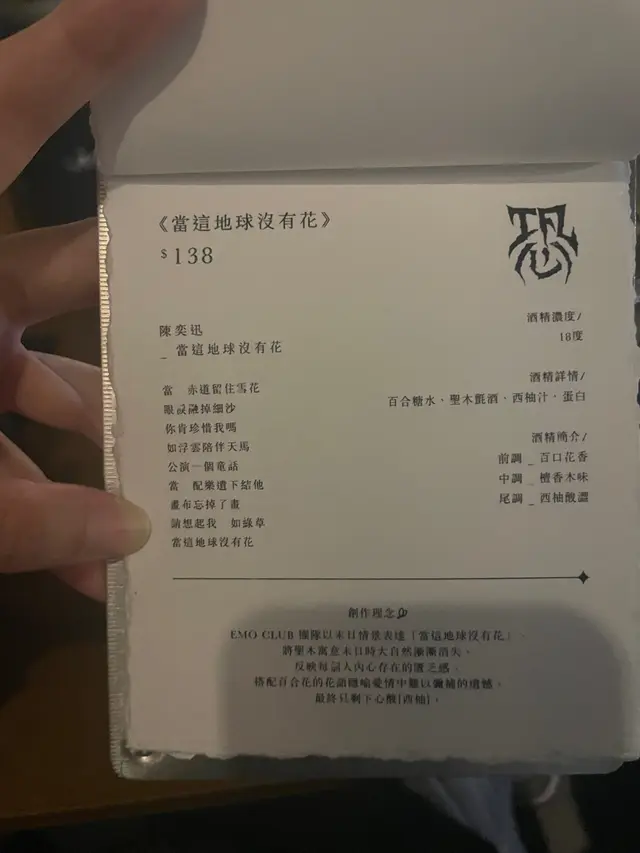 《當這地球沒有花》
$138
恐
陳奕迅
_ 當這地球沒有花
當 赤道留住雪花
眼淚融掉細沙
你肯珍惜我嗎
如浮雲陪伴天馬
公演一個童話
當 配樂遺下結他
畫布忘掉了畫
請想起我 如綠草
當這地球沒有花
酒精濃度/
18度
酒精詳情/
百合糖水．聖木氈酒．西柚汁．蛋白
酒精簡介/
前調 _ 百口花香
中調 _ 檀香木味
尾調 _ 西柚酸澀
創作理念
EMO CLUB 團隊以末日情景表達「當這地球沒有花」，
將聖木寓意末日時大自然漸漸消失，
反映每個人內心存在的匱乏感，
搭配百合花的花語隱喻愛情中難以彌補的遺憾，
最終只剩下心酸[西柚]。